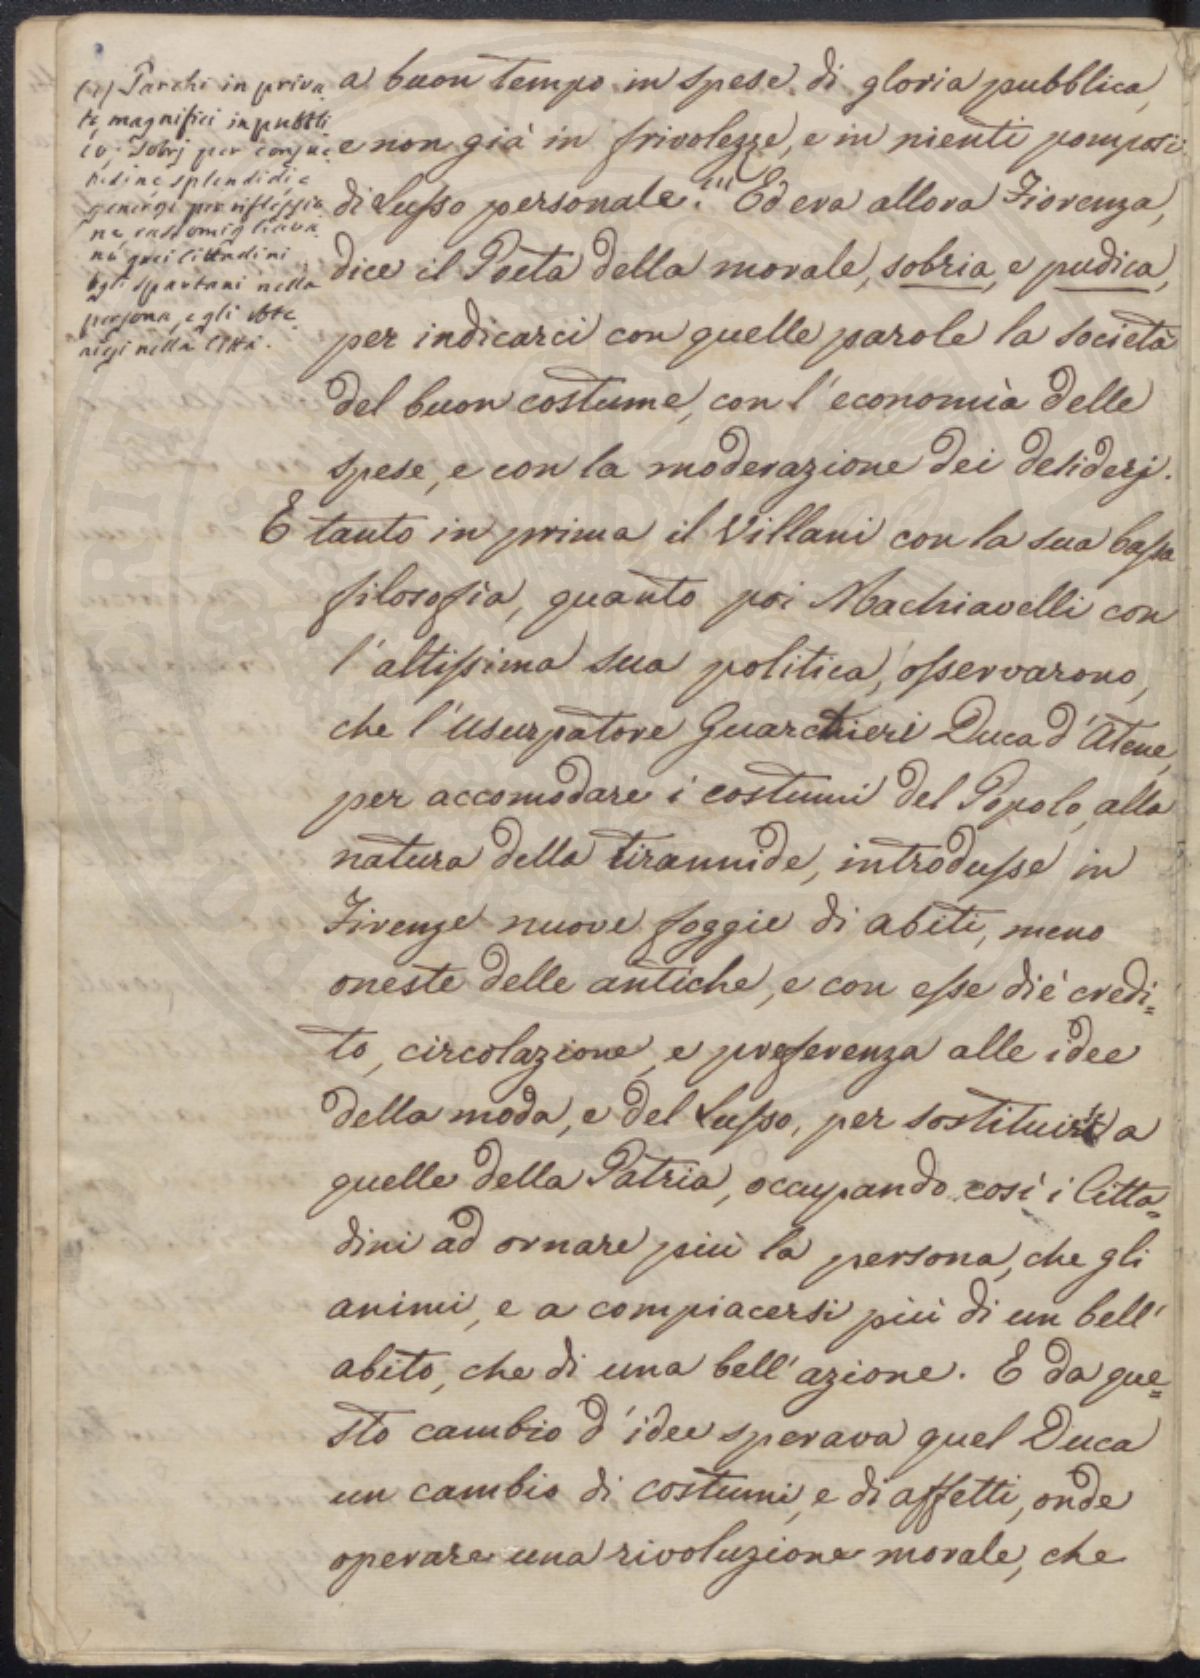 (1) Parchi in priva
ti, magnifici in pubbli
co; Sobrj per consue
tudine, splendidi, e
generosi per riflessio
ne rassomigliava
no quei cittadini
agli spartani nella
persona, e gli Ate
niesi nella Città.
a buon tempo in spese di gloria pubblica,
e non già in frivolezze, e in nienti pomposi
di Lusso personale. (1) Ed era allora Fiorenza,
dice il Poeta della morale, sobria, e pudica,
per indicarci con quelle parole la società
del buon costume, con l'economia delle
spese, e con la moderazione dei desiderj.
E tanto in prima il Villani con la sua bassa
filosofia, quanto poi Machiavelli con
l'altissima sua politica, osservarono,
che l'Usurpatore Guarchieri Duca d'Atene,
per accomodare i costumi del Popolo, alla
natura della tirannide, introdusse in
Firenze nuove foggie di abiti, meno
oneste delle antiche, e con esse diè credi=
to, circolazione, e preferenza alle idee
della moda, e del Lusso, per sostituirle a
quelle della Patria, occupando così i Citta=
dini ad ornare più la persona, che gli
animi, e a compiacersi più di un bell'
abito, che di una bell'azione. E da que=
sto cambio d'idee sperava quel Duca
un cambio di costumi, e di affetti, onde
operare una rivoluzione morale, che